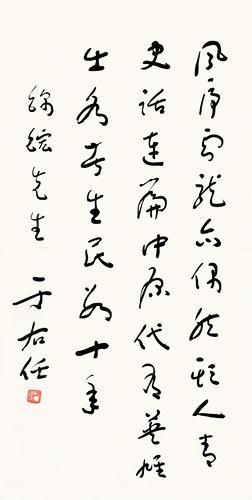 風虎雲龍亦偶然欺人青
史話連篇中原代有英雄
出各苦生民數十年
先生 于右任